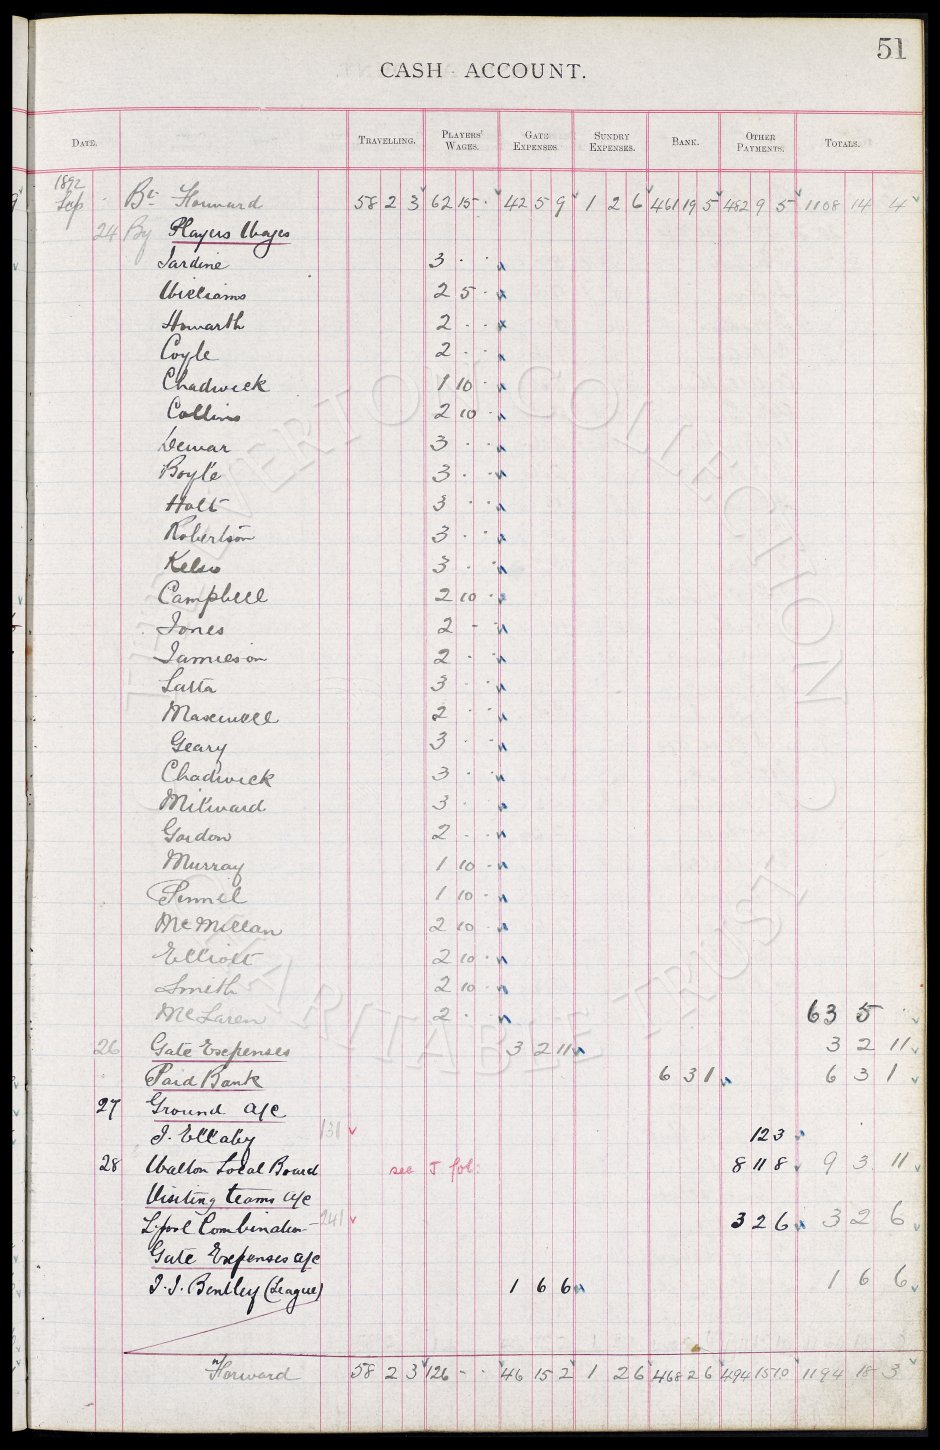 51
CASH ACCOUNT.
DATE. TRAVELLING. PLAYERS' WAGES. GATE EXPENSES. SUNDRY EXPENSES. BANK. OTHER PAYMENTS. TOTALS.
1892
Sep Bt Forward 58 2 3 62 15 · 42 5 9 1 2 6 461 19 5 482 9 5 1108 14 4
24 By Players Wages
Jardine 3 · ·
Williams 2 5 ·
Howarth 2 · ·
Coyle 2 · ·
Chadwick 1 10 ·
Collins 2 10 ·
Dewar 3 · ·
Boyle 3 · ·
Holt 3 · ·
Robertson 3 · ·
Kelso 3 · ·
Campbell 2 10 ·
Jones 2 - ·
Jamieson 2 · ·
Latta 3 · ·
Maxwell 2 · ·
Geary 3 · ·
Chadwick 3 · ·
Milward 3 · ·
Gordon 2 · ·
Murray 1 10 ·
Pinnel 1 10 ·
McMillan 2 10 ·
Elliott 2 10 ·
Smith 2 10 ·
McLaren 2 · · 63 5
26 Gate Expenses 3 2 11 3 2 11
Paid Bank 6 3 1 6 3 1
27 Ground a/c
J. Ellaby 131 12 3
28 Walton Local Board see J fol: 8 11 8 9 3 11
Visiting teams a/c
L'pool Combination 241 3 2 6 3 2 6
Gate Expenses a/c
J. J. Bentley (League) 1 6 6 1 6 6
Forward 58 2 3 126 - · 46 15 2 1 2 6 468 2 6 494 15 10 1194 18 3
THE EVERTON COLLECTION
CHARITABLE TRUST